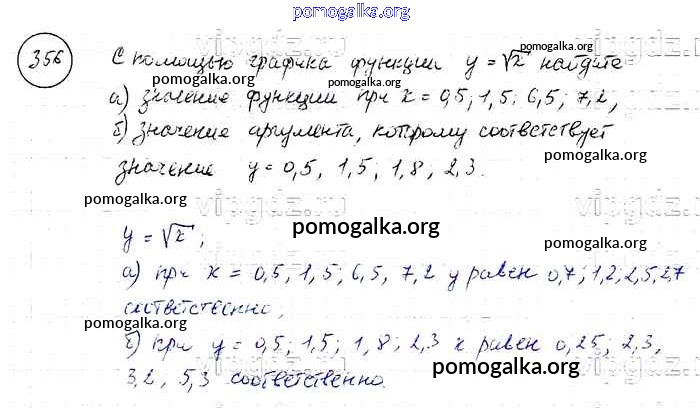 pomogalka.org
356 С помощью графика функции y = √x найдите
pomogalka.org
а) значение функции при x = 0,5; 1,5; 6,5; 7,2,
б) значение аргумента, которому соответствует
pomogalka.org
значение y = 0,5, 1,5; 1,8, 2,3.
pomogalka.org
vipgdz.ru
y = √x;
pomogalka.org
а) при x = 0,5, 1,5; 6,5, 7,2 y равен 0,7; 1,2; 2,5; 2,7
соответственно;
pomogalka.org
б) при y = 0,5; 1,5; 1,8; 2,3 x равен 0,25; 2,3,
3,2, 5,3 соответственно.
pomogalka.org